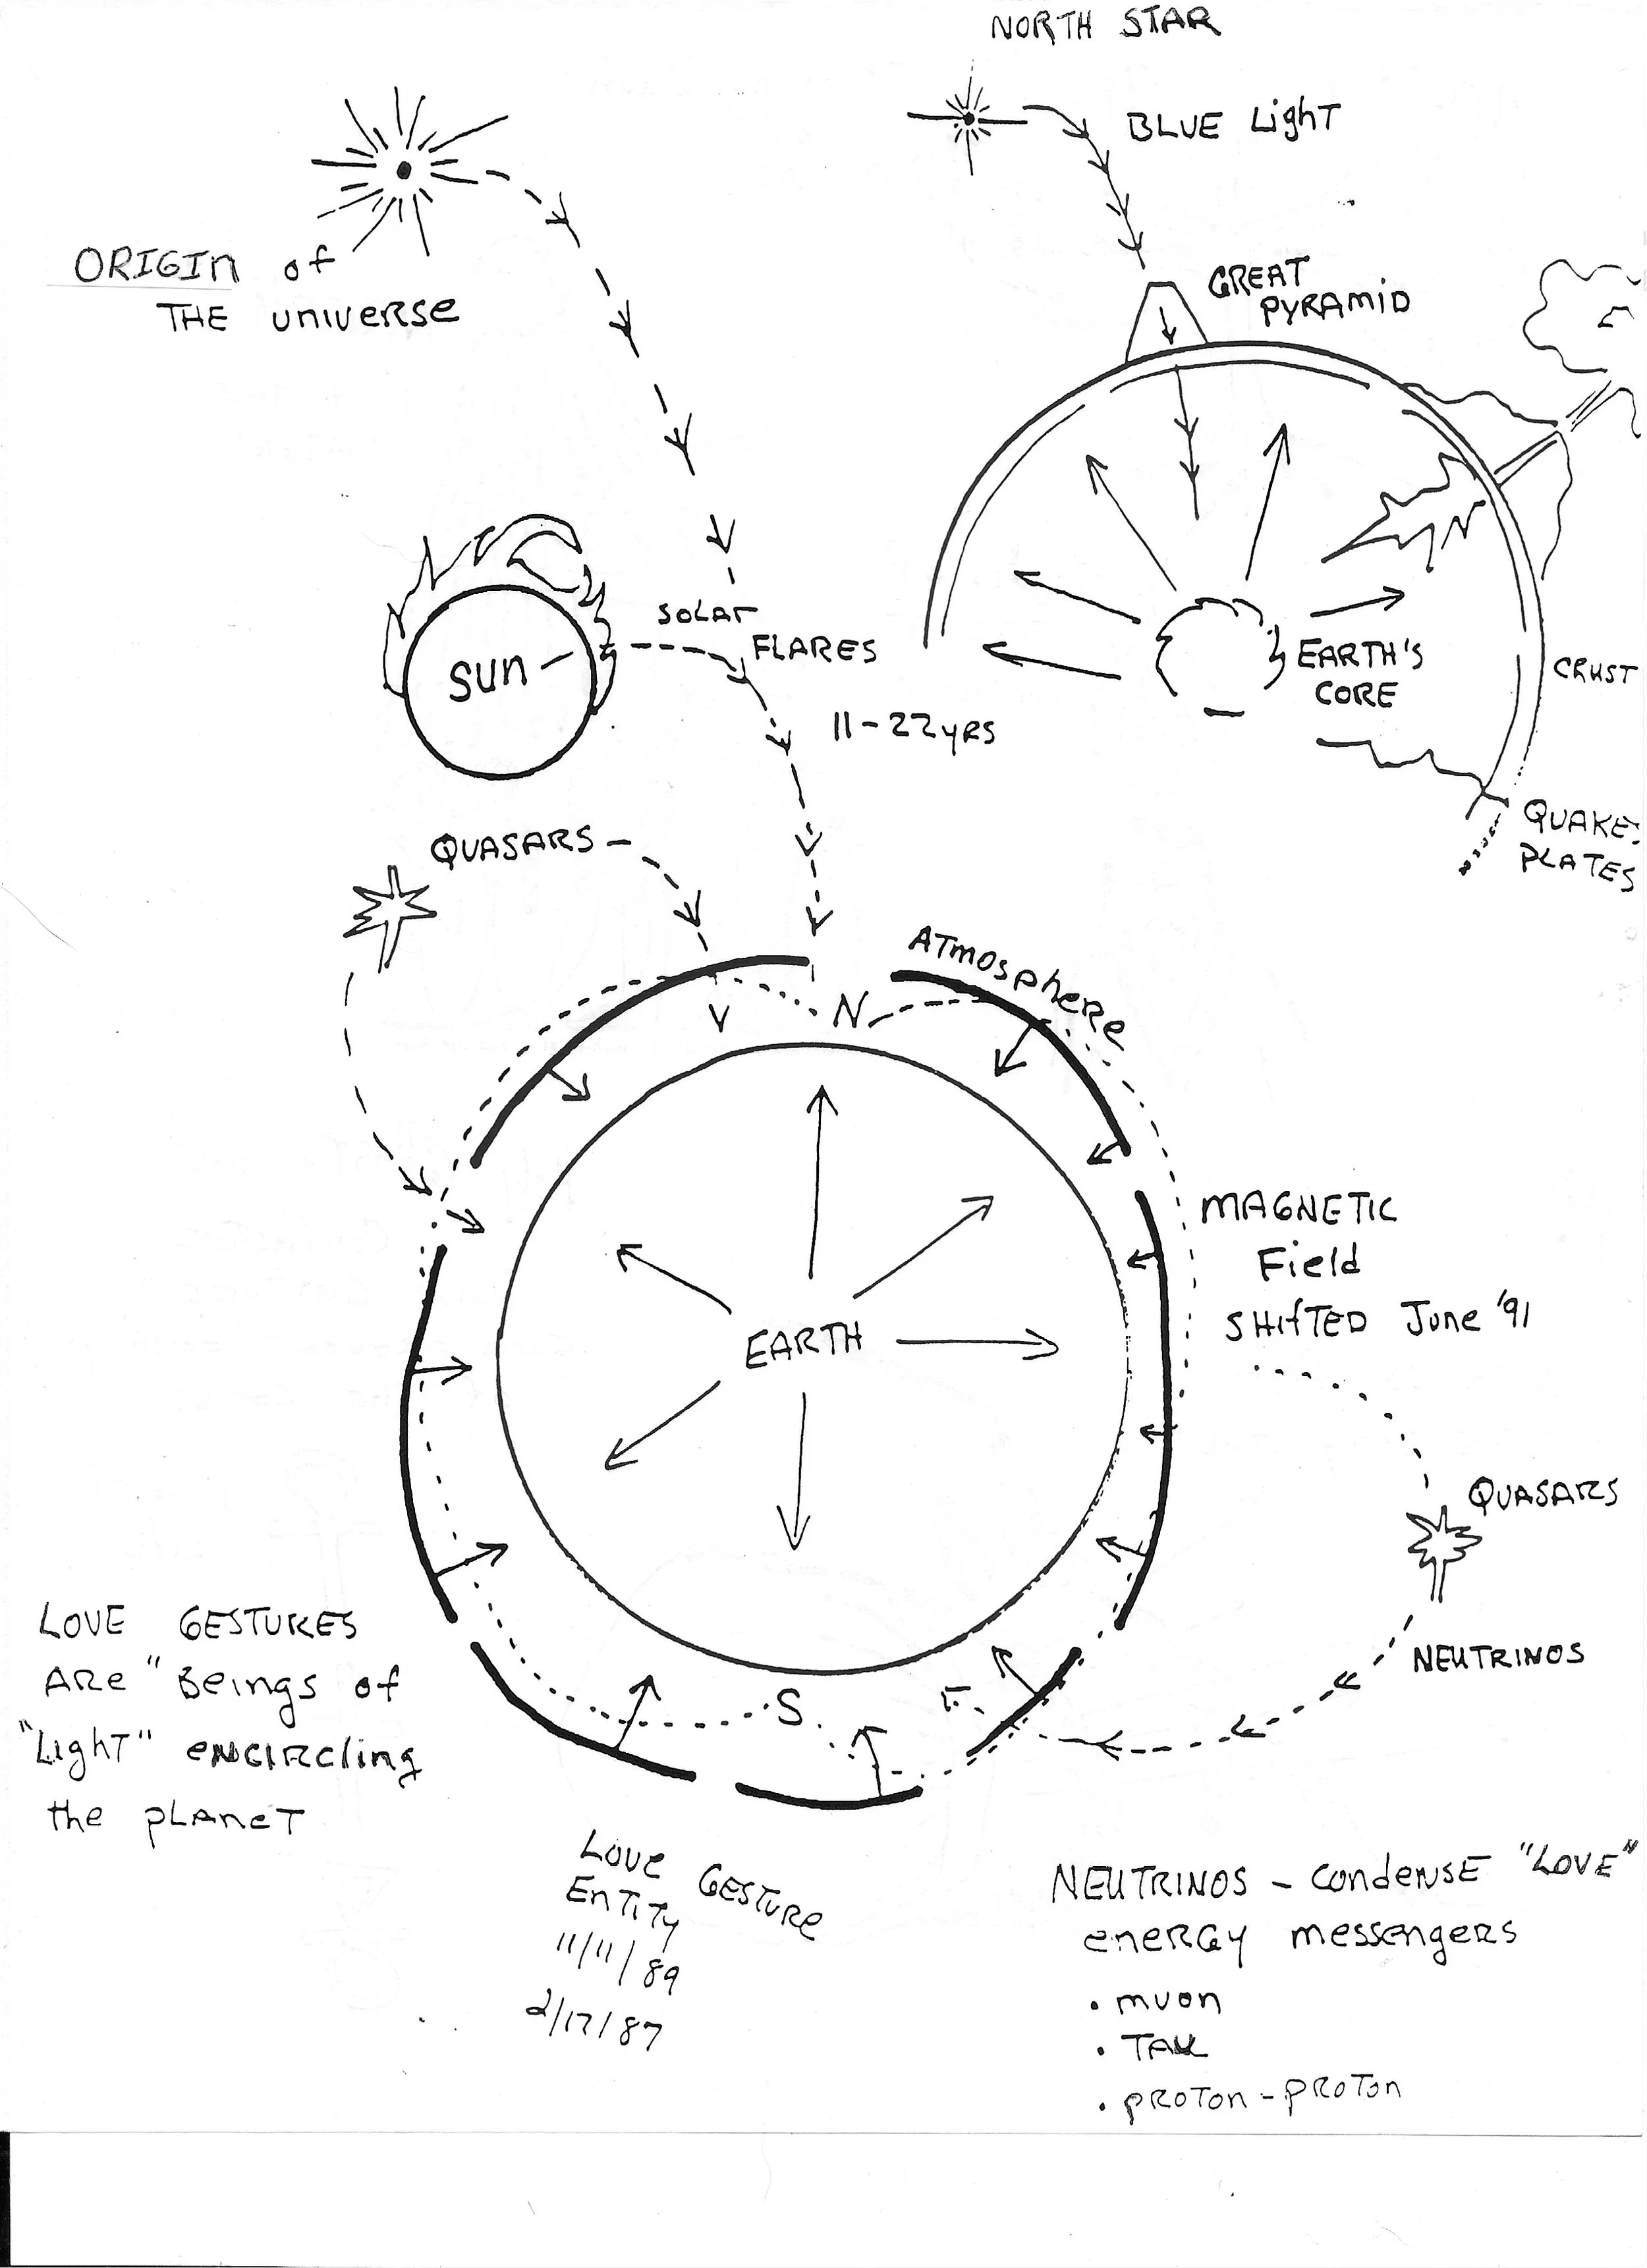 NORTH STAR
BLUE LighT
ORIGIN of
THE universe
GREAT
PYRAMID
SUN
SOLAR
FLARES
11-22yRS
EARTH'S
CORE
CRUST
QUAKE:
PLATES
QUASARS
ATmosphere
N
MAGNETIC
Field
SHifTED June '91
EARTH
QUASARS
NEUTRINOS
S
LOVE GESTURES
ARe "Beings of
"LighT" encircling
the plANeT
Love GESTURe
EnTiTy
11/11/89
2/17/87
NEUTRINOS - condense "LOVE"
eneRGy messengers
• muon
• TAU
• pROTON-pROTON